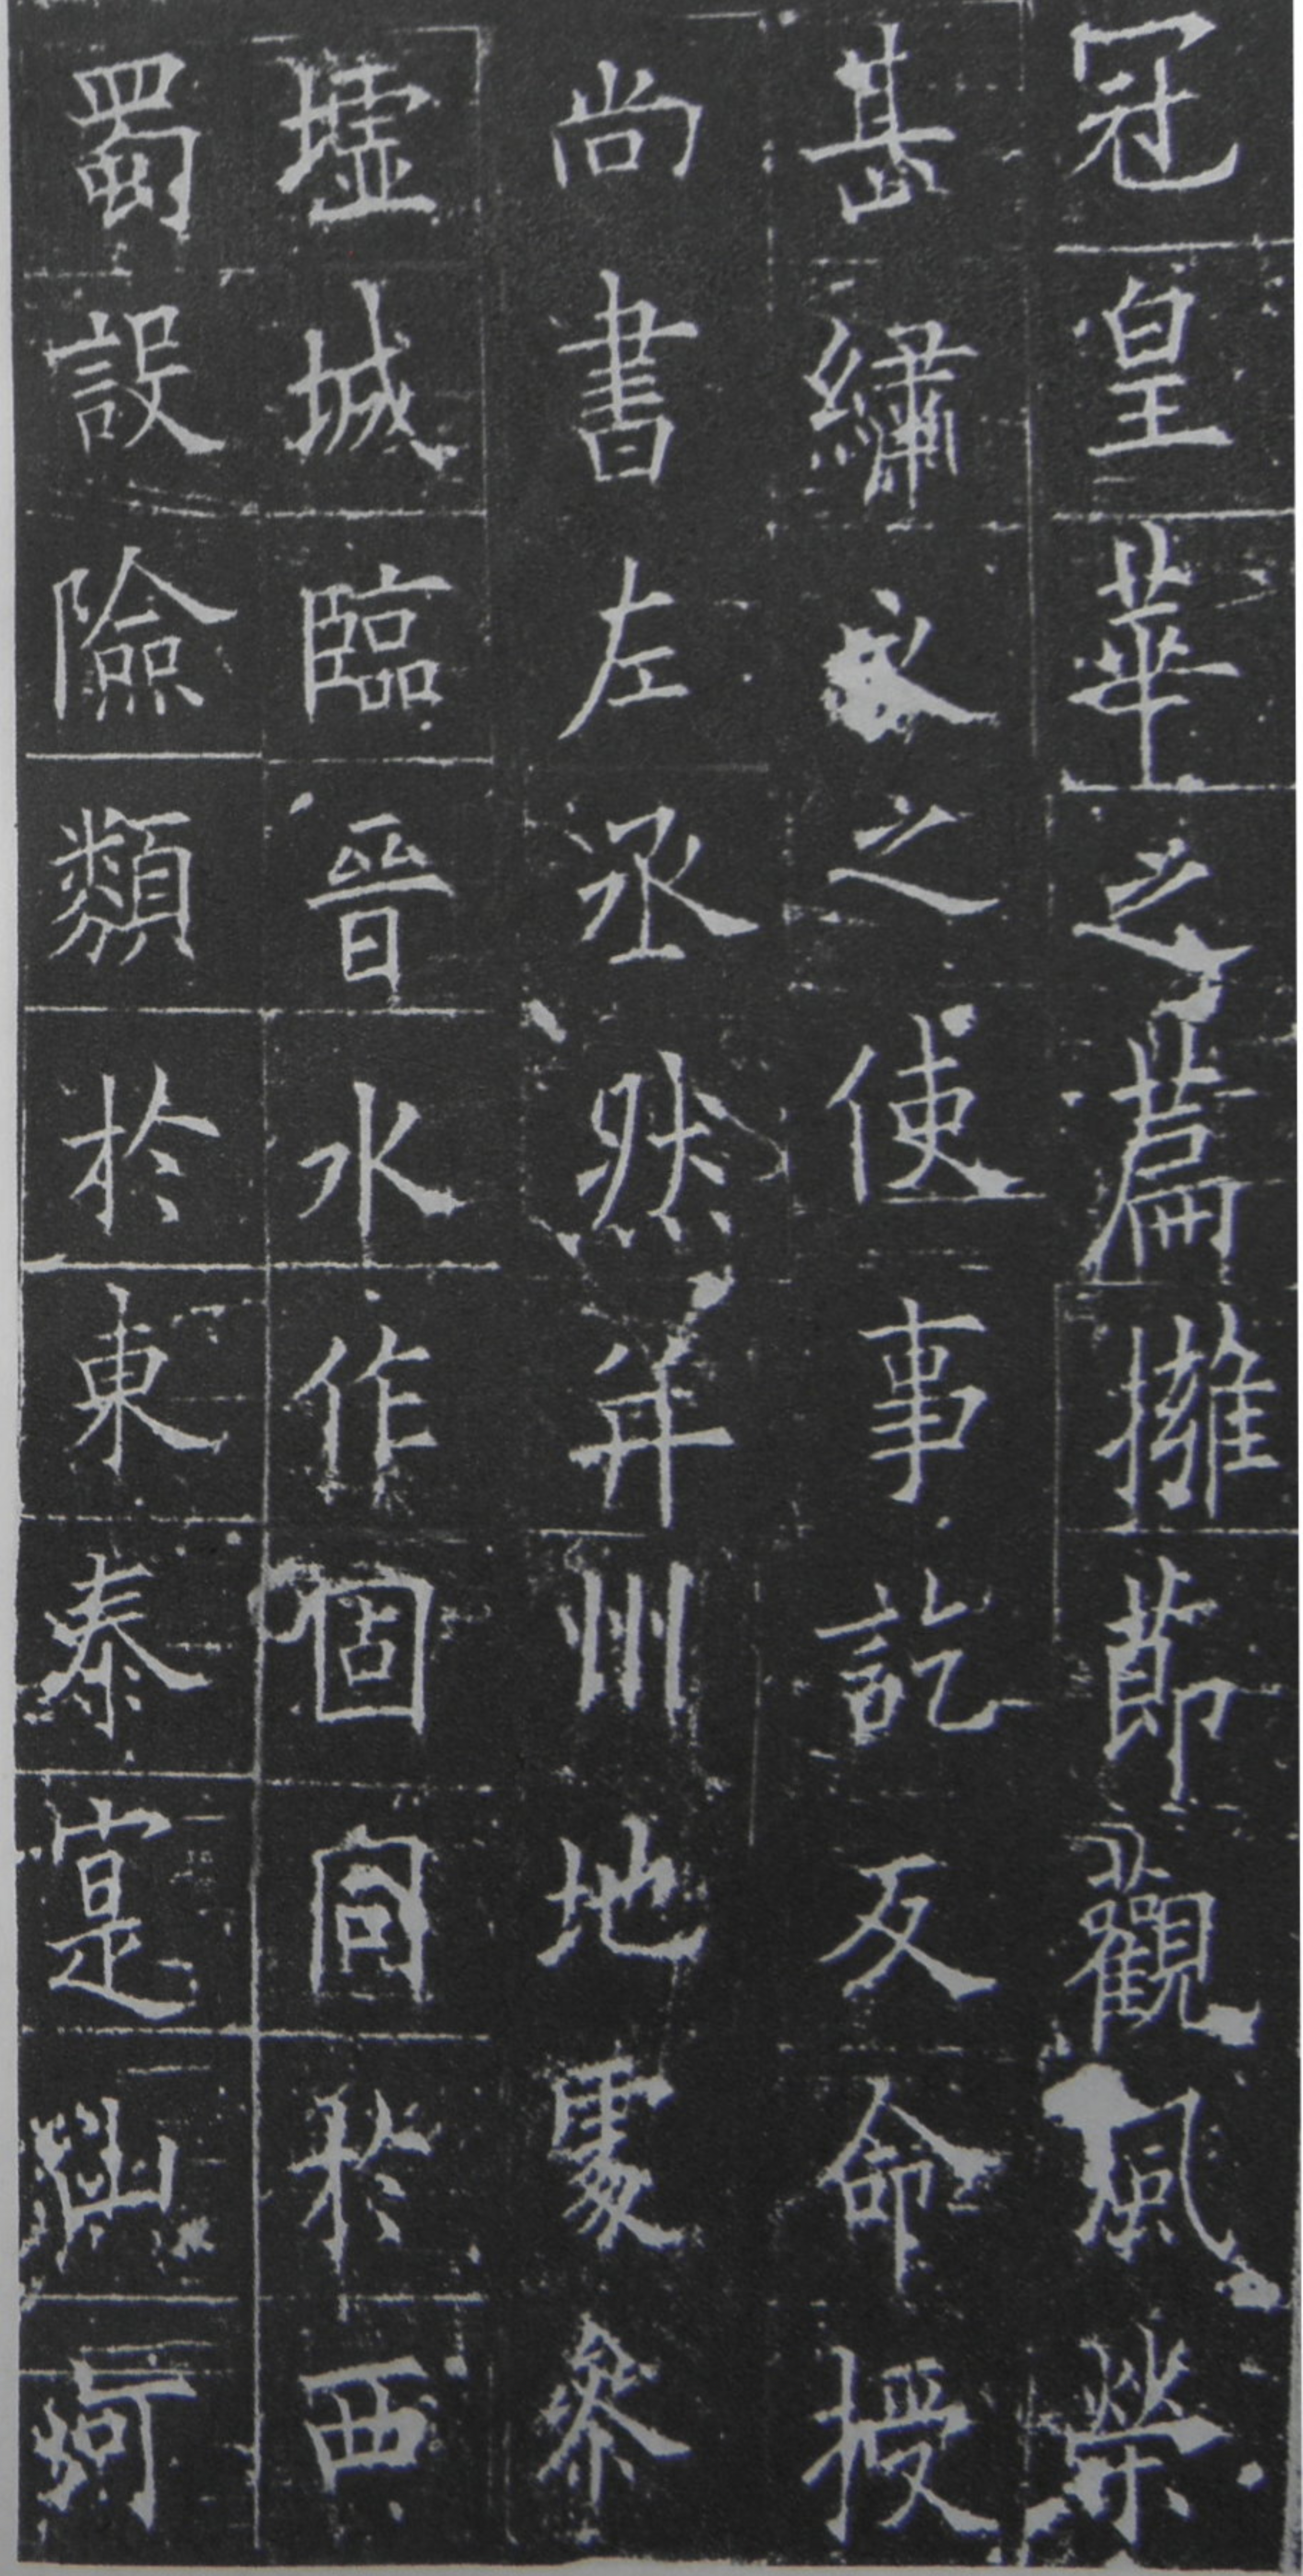 冠皇華之篇擁節觀風榮
甚繡衣之使事訖反命授
尚書左丞然并州地處參
墟城臨晉水作固同於西
蜀設險類於東秦寔